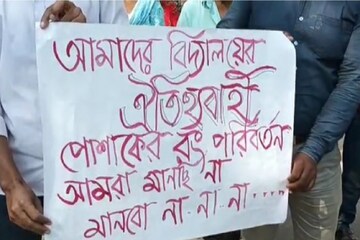 আমাদের বিদ্যালয়ের
ঐতিহ্যবাহী
পোশাকের রং পরিবর্তন
আমরা মানছি না
মানবো না-না-না.....